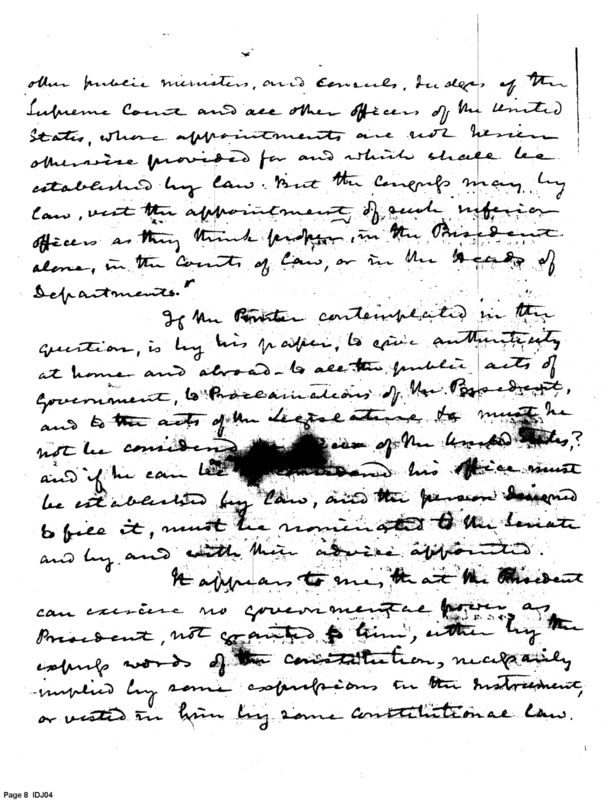 other public ministers, and consuls, Judges of the
Supreme Court and all other officers of the United
States, whose appointments are not herein
otherwise provided for and which shall be
established by Law. But the Congress may, by
Law, vest the appointment of such inferior
officers as they think proper, in the President
alone, in the Courts of Law, or in the Heads of
Departments."
If the Printer contemplated in the
question, is by his paper, to give authenticity
at home and abroad to all the public acts of
Government, to Proclamations of the President,
and to the acts of the Legislature must he
not be considered of the United States,?
and if he can be considered his office must
be established by Law, and the person designed
to fill it, must be nominated to the Senate
and by and with their advice appointed.
It appears to me, that the President
can exercise no governmental power as
President, not granted to him, either by the
express words of the constitution, necessarily
implied by some expressions in the Instrument,
or vested in him by some constitutional Law.
Page 8 IDJ04